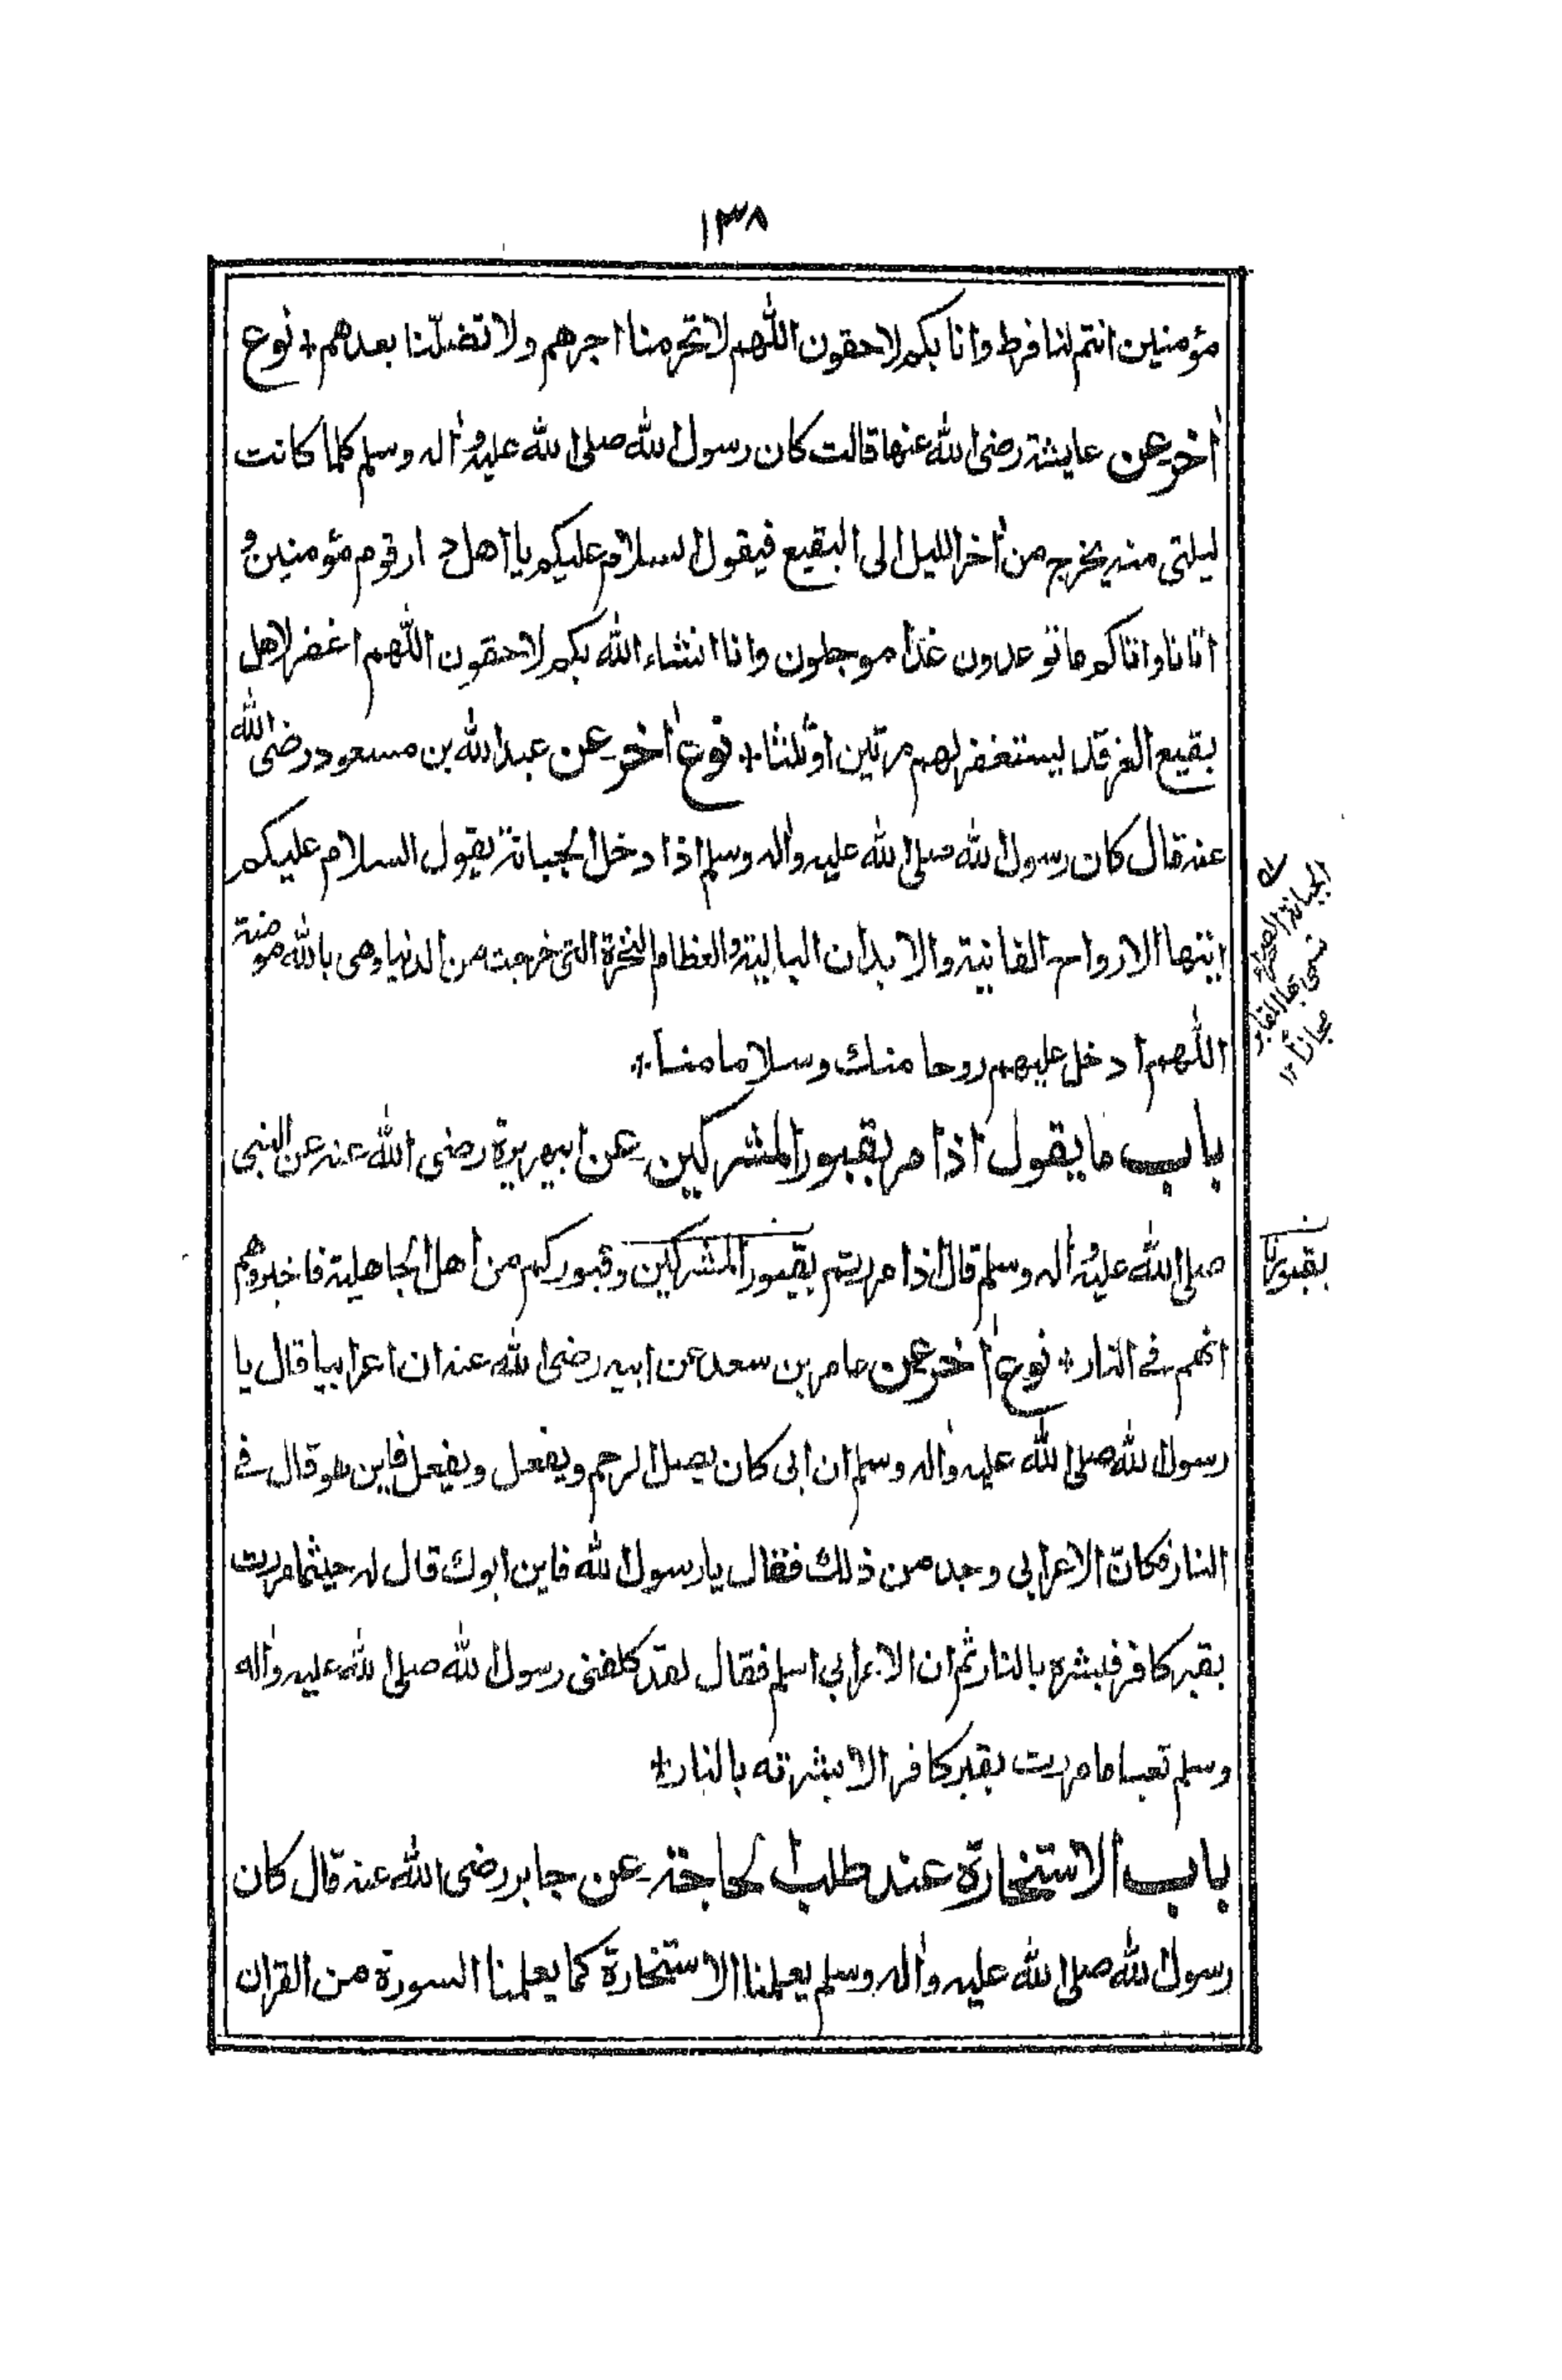 ١٣٨
مؤمنين انتم لنا فرط وانا بكم لاحقون اللهم لا تحرمنا اجرهم ولا تضلّنا بعدهم * نوع
اٰخر عن عايشة رضى الله عنها قالت كان رسول الله صلى الله عليه واٰله وسلم كلما كانت
ليلتى منه يخرج من اٰخر الليل الى البقيع فيقول السلام عليكم يا اهل دار قوم مؤمنين و
اتانا واتاكم ما توعدون غدًا موجلون وانا انشاء الله بكم لاحقون اللهم اغفر لاهل
بقيع الغرقد يستغفر لهم مرتين او ثلثا * نوع اٰخر عن عبد الله بن مسعود رضى الله
عنه قال كان رسول الله صلى الله عليه واٰله وسلم اذا دخل الجبانة يقول السلام عليكم
ايتها الارواح الفانية والابدان البالية والعظام النخرة التى خرجت من الدنيا وهى بالله مومنة
اللهم ادخل عليهم روحا منك وسلاما منا *
باب ما يقول اذا مر بقبور المشركين عن ابيهريرة رضى الله عنه عن النبى
صلى الله عليه واٰله وسلم قال اذا مررتم بقبور المشركين وقبوركم من اهل الجاهلية فاخبروهم
انهم فى النار * نوع اٰخر عن عامر بن سعد عن ابيه رضى الله عنه ان اعرابيا قال يا
رسول الله صلى الله عليه واٰله وسلم ان ابى كان يصل الرحم ويفعل ويفعل فاين هو قال فى
النار فكانّ الاعرابى وجد من ذلك فقال يا رسول الله فاين ابوك قال له حيثما مررت
بقبر كافر فبشره بالنار ثم ان الاعرابى اسلم فقال لقد كلفنى رسول الله صلى الله عليه واٰله
وسلم تعبا ما مررت بقبر كافر الا بشرته بالنار *
باب الاستخارة عند طلب الحاجة عن جابر رضى الله عنه قال كان
رسول الله صلى الله عليه واٰله وسلم يعلمنا الاستخارة كما يعلمنا السورة من القران
الجبانة الصحراء
تسمى بها المقابر
مجازا ١٢
بقبورنا